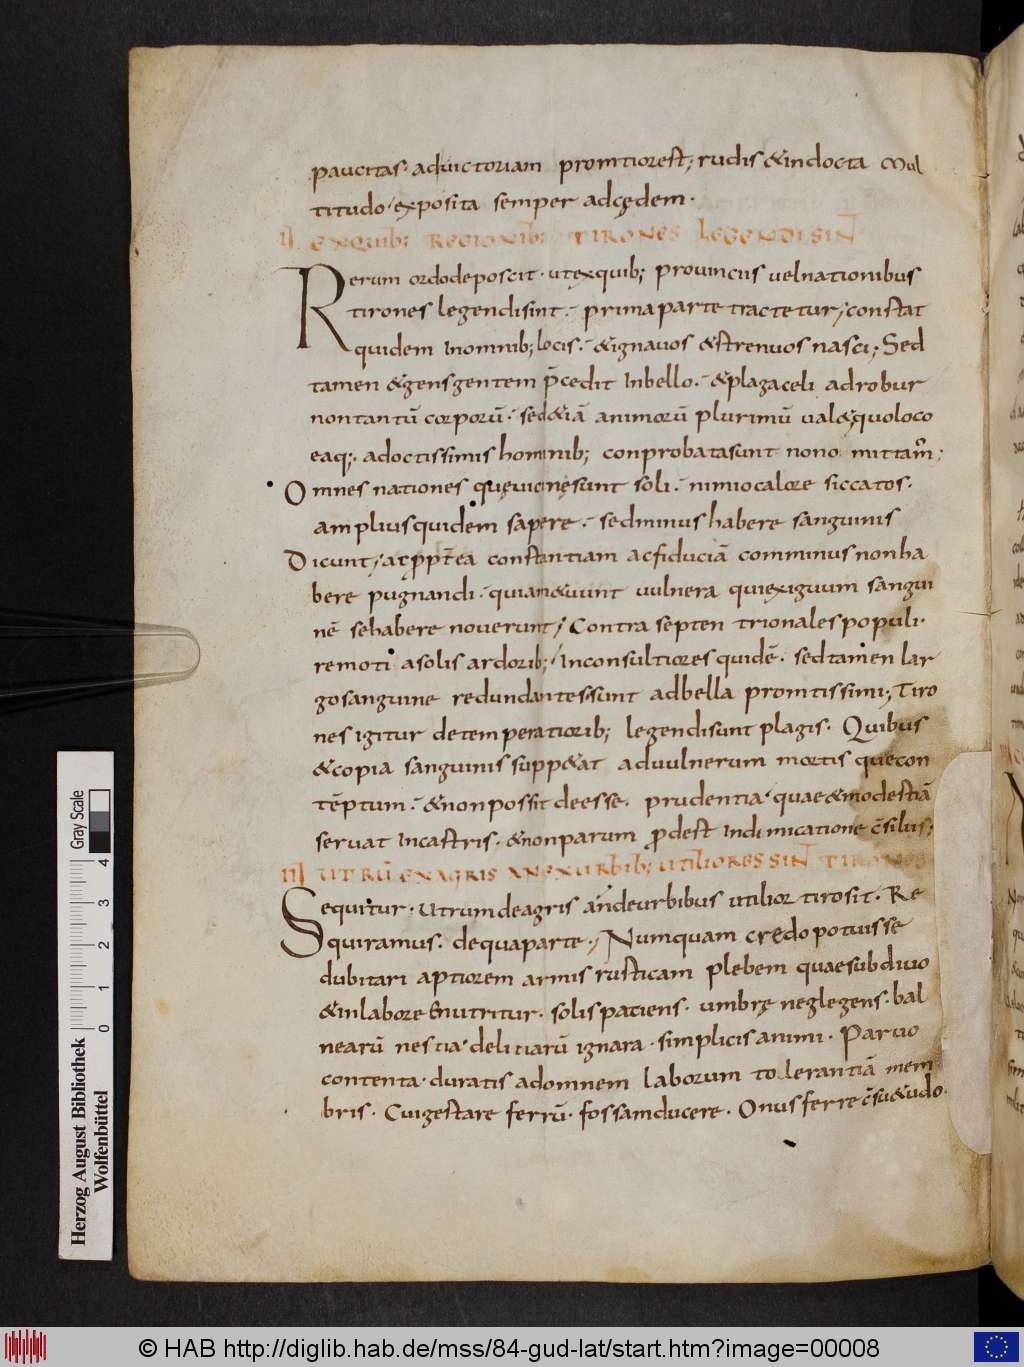 paucitas· aduictoriam promtiorest; rudis &indocta mul
titudo· exposita semper adcędem·
II EXQUIB; REGIONIB; TIRONES LEGENDI SINT
Rerum ordodeposcit· utexquib; prouinciis uelnationibus
tirones legendisint· primaparte tractetur; constat
quidem Inomnib; locis· &ignauos &strenuos nasci; Sed
tamen &gensgentem p̄cedit Inbello· &plagaceli adrobur
nontantū corporū· sed&iā animorū plurimū ual&; quoloco
eaq; adoctissimis hominib; conprobatasunt nono mittam;
Omnes nationes quęuicinęsunt soli· nimiocalore siccatos·
ampliusquidem sapere· sedminus habere sanguinis
Dicunt; acꝓpt̄ea constantiam acfiduciā comminus nonha
bere pugnandi· quiam&uunt uulnera quiexiguum sangui
nē sehabere nouerunt; Contra septen trionales populi·
remoti asolis ardorib; Inconsultiores quidē· sedtamen lar
gosanguine redundantessunt adbella promtissimi; Tiro
nes igitur detemperatiorib; legendisunt plagis· Quibus
&copia sanguinis supp&at aduulnerum mortis quecon
tēptum· &nonpossit deesse· prudentia· quae&modestiā
seruat Incastris· &nonparum ꝓdest Indimicatione c̄siliis;
III UTRŪ EXAGRIS AN EXURBIB; UTILIORES SINT TIRONES
Sequitur· utrumdeagris andeurbibus utilior tirosit· Re
quiramus· dequaparte; Numquam credo potuisse
dubitari aptiorem armis rusticam plebem quaesubdiuo
&inlabore enutritur· solispatiens· umbrę neglegens· bal
nearū nestia· delitiarū ignara· simplicis animi· Paruo
contenta· duratis adomnem laborum tolerantiā mem
bris· Cuigestare ferrū· fossamducere· Onusferre c̄su&udo·
Herzog August Bibliothek
Wolfenbüttel
0 1 2 3 4
Gray Scale
© HAB http://diglib.hab.de/mss/84-gud-lat/start.htm?image=00008